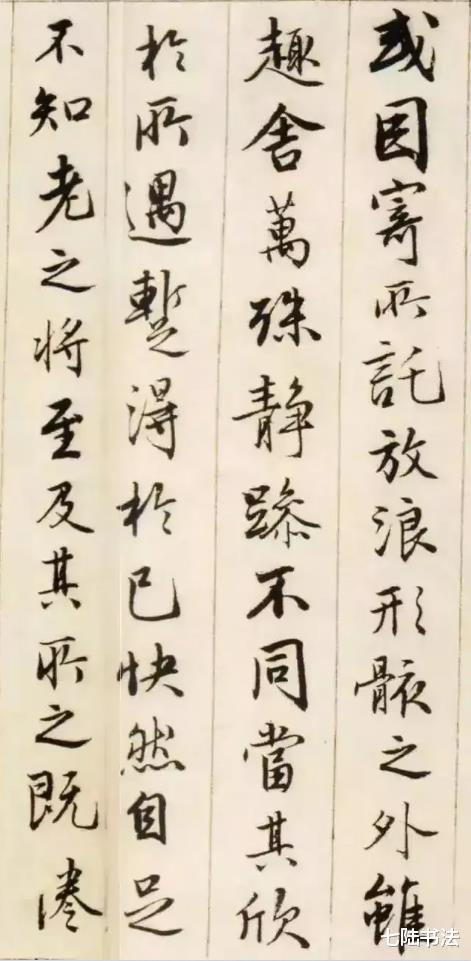 或因寄所託放浪形骸之外雖
趣舍萬殊静躁不同當其欣
於所遇暫得於己快然自足
不知老之將至及其所之既惓
七陆书法